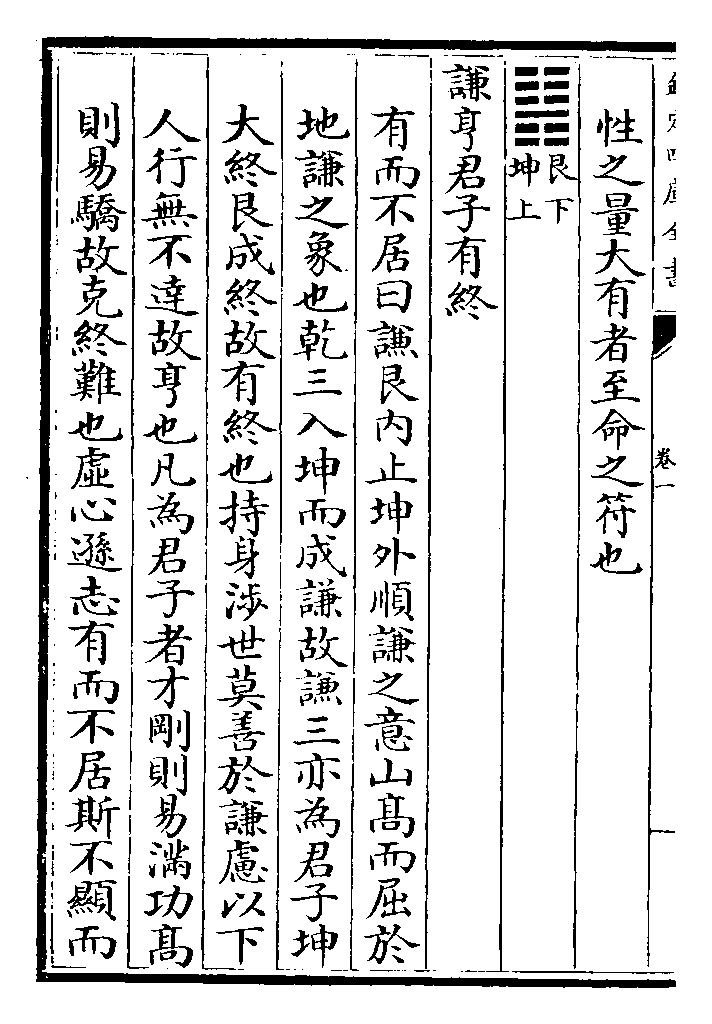 欽定四庫全書
卷一
性之量大有者至命之符也
䷎艮下坤上
謙亨君子有終
有而不居曰謙艮内止坤外順謙之意山髙而屈於
地謙之象也乾三入坤而成謙故謙三亦為君子坤
大終艮成終故有終也持身涉世莫善於謙慮以下
人行無不達故亨也凡為君子者才剛則易滿功髙
則易驕故克終難也虛心遜志有而不居斯不顯而